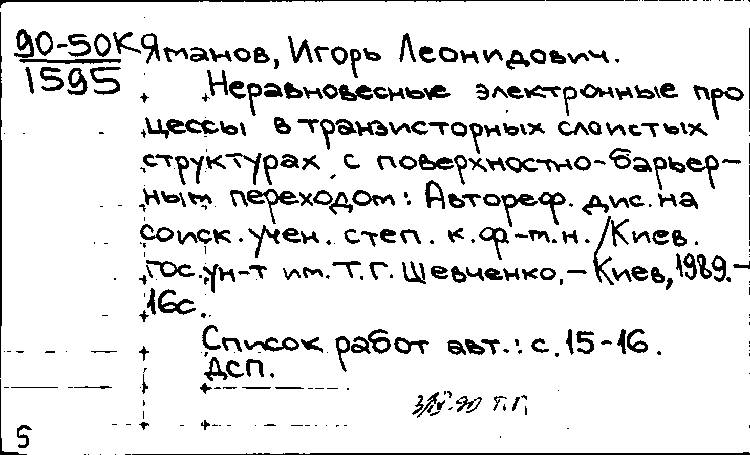 90-50К Яманов, Игорь Леонидович.
1595 Неравновесные электронные про
цессы в транзисторных слоистых
структурах с поверхностно-барьер-
ным переходом: Автореф. дис. на
соиск. учен. степ. к.ф-м.н. /Киев.
гос. ун-т им. Т.Г. Шевченко. – Киев, 1989. –
16с.
Список работ авт.: с. 15-16.
ДСП.
90 Т.Г.
5